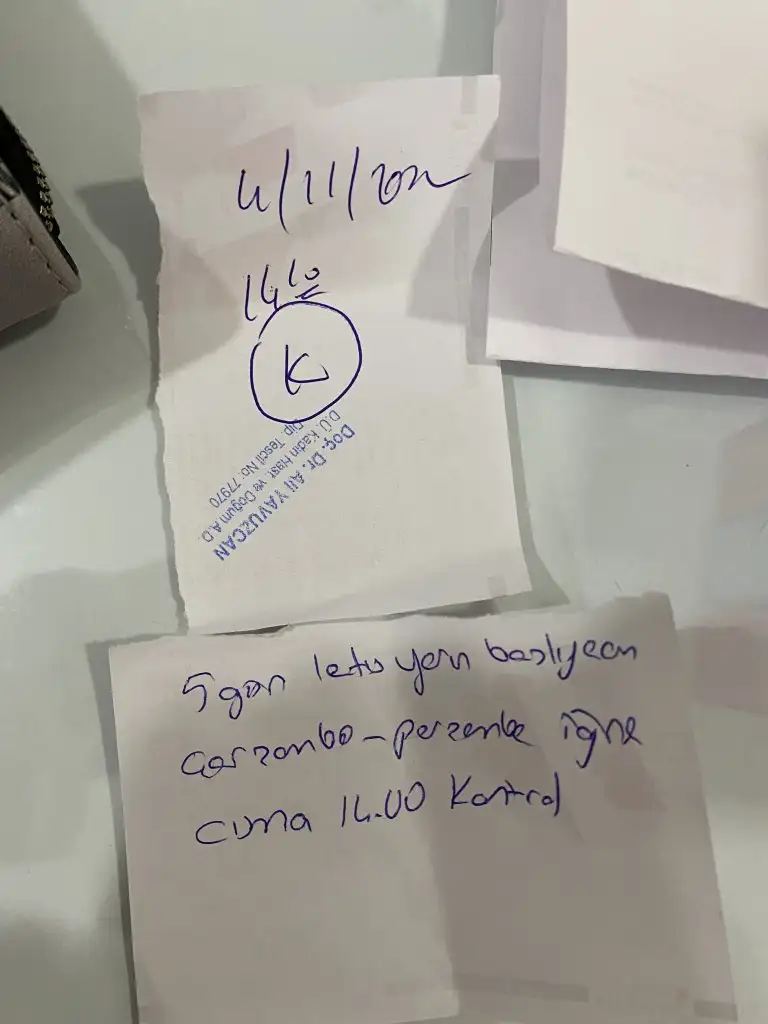 4/11/2022
14 10
K
Doç. Dr. Ali YAVUZCAN
D.Ü. Kadın Hast. ve Doğum A.D.
Dip. Tescil No: 77970
5 gün letu yarın başlıyean
Çarşamba - perşembe iğne
cuma 14.00 Kontrol